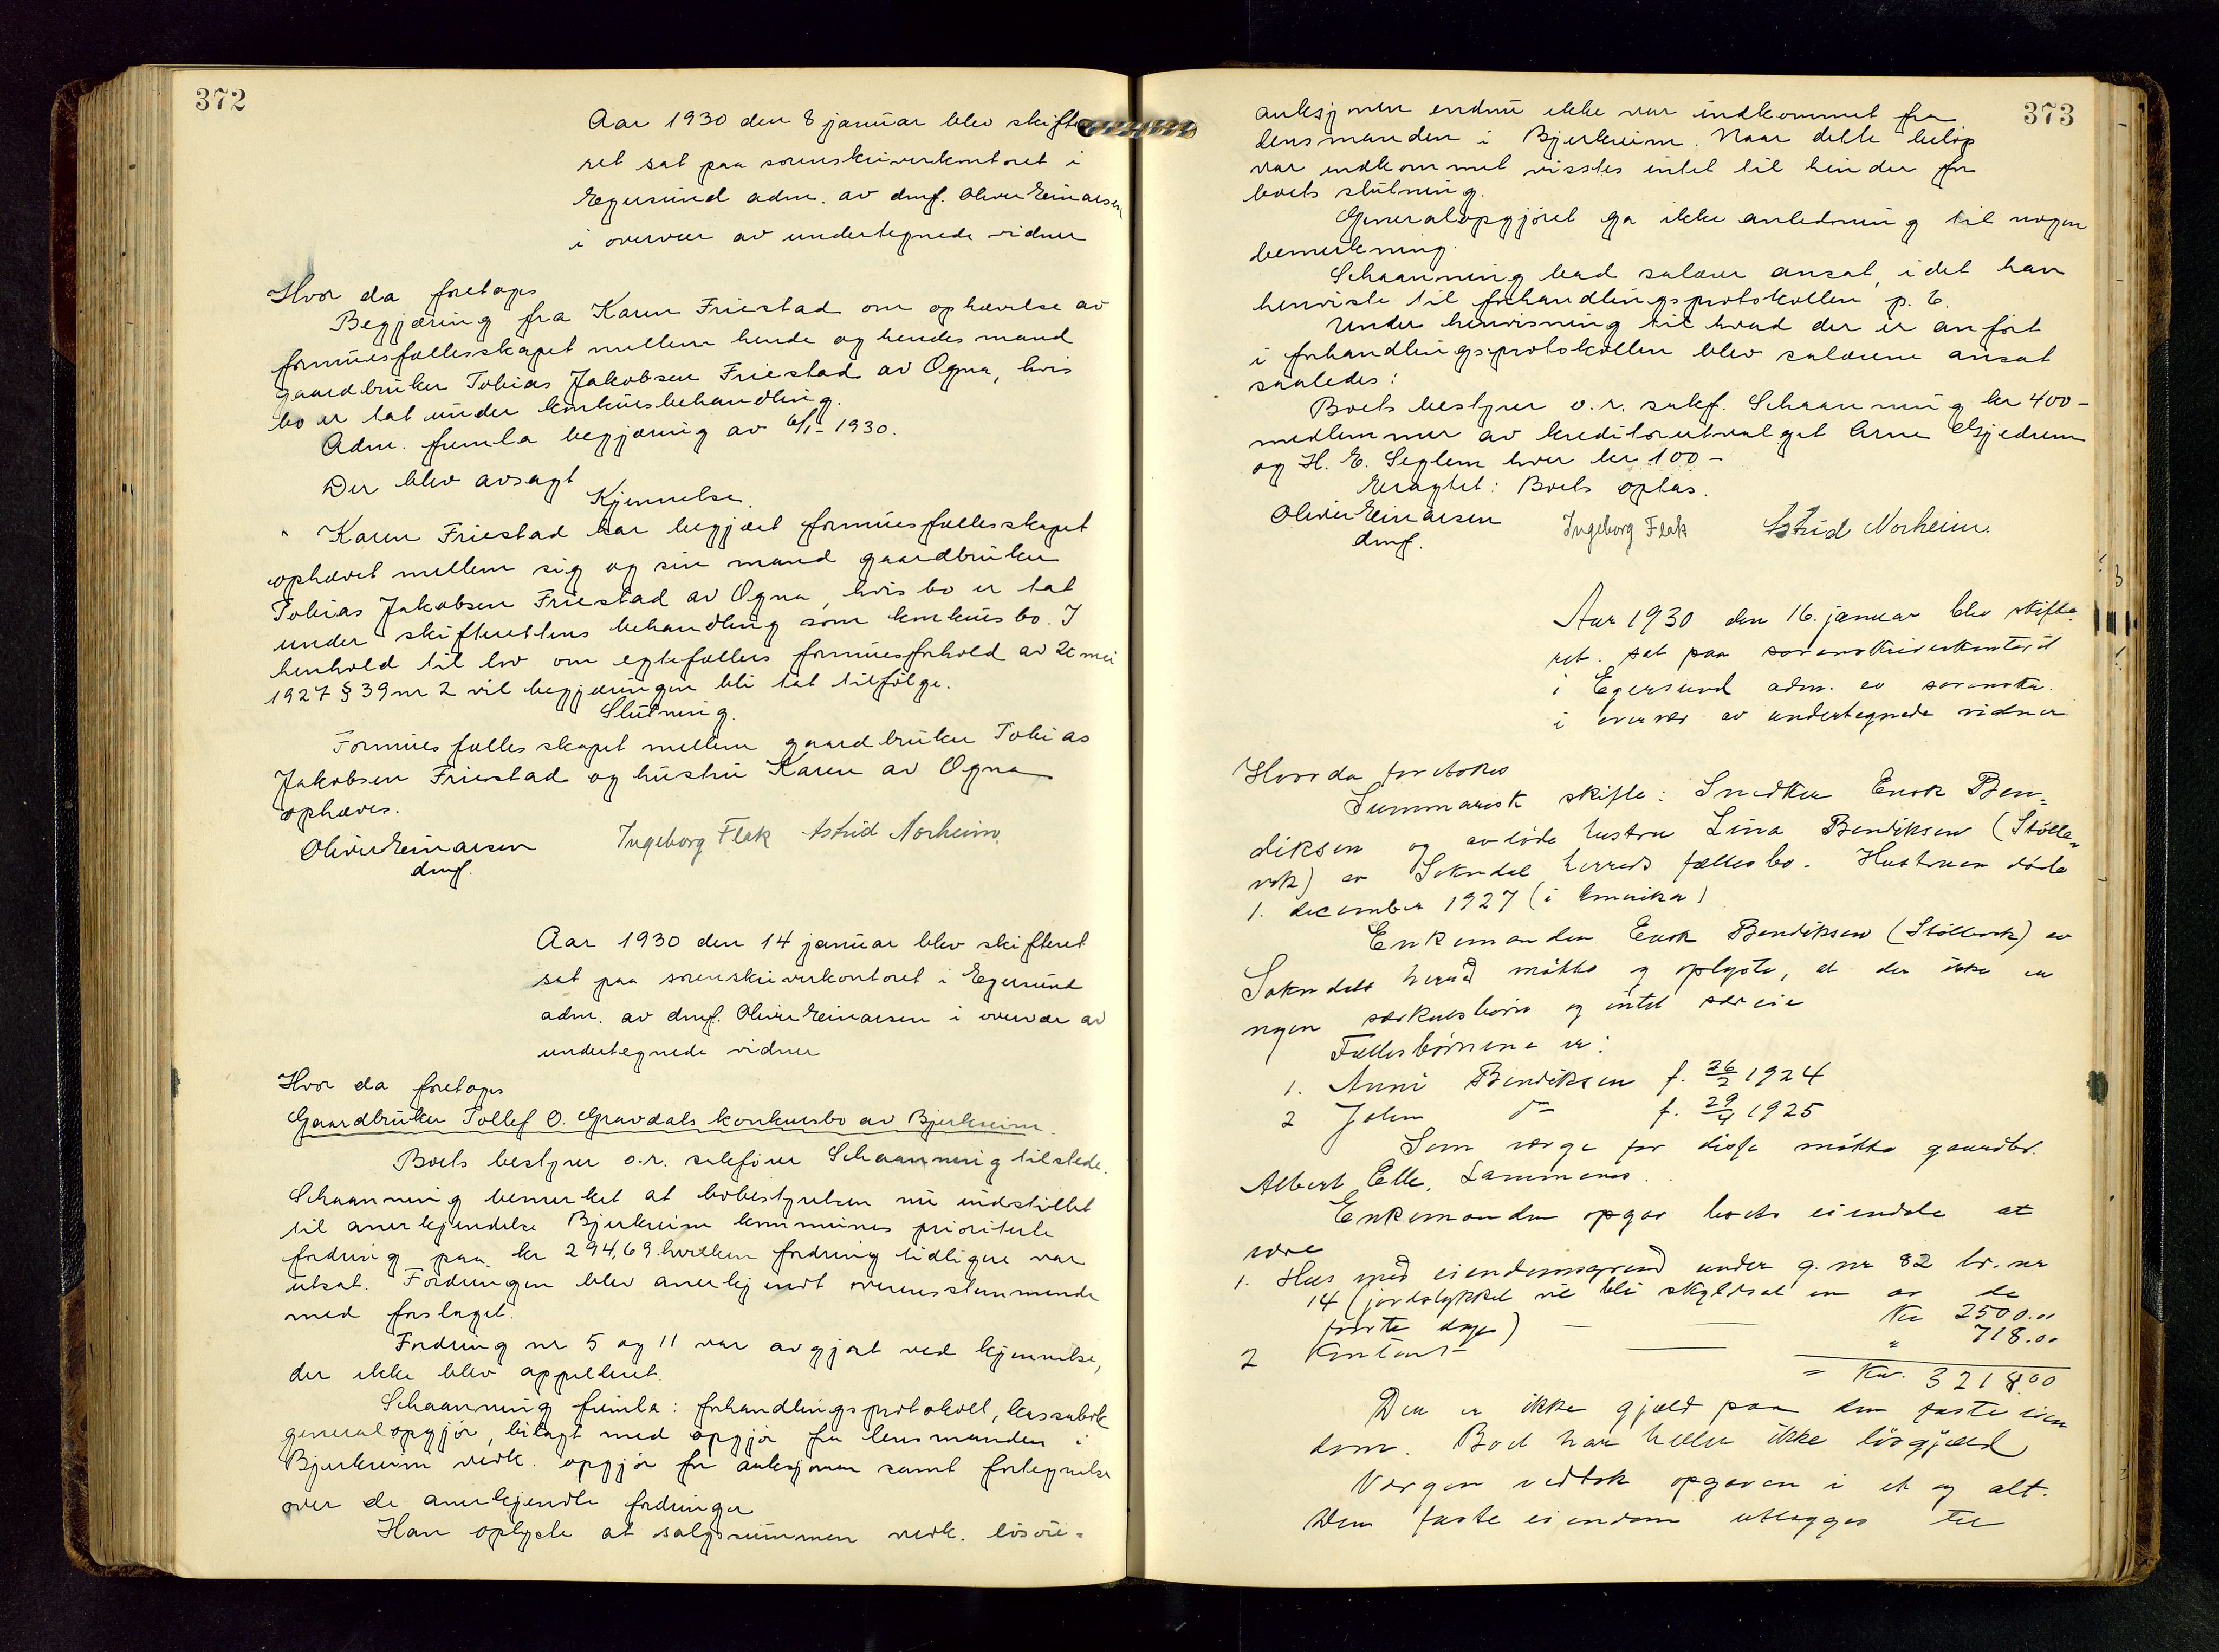 372
Aar 1930 den 8 januar blev skifte
ret sat paa sorenskriverkontoret i
Egersund adm. av dmf. Oliver Einarsen
i overvær av undertegnede vidner
Hvor da foretoges
Begjæring fra Karen Friestad om ophævelse av
formuesfællesskapet mellem hende og hendes mand
gaardbruker Tobias Jakobsen Friestad av Ogna, hvis
bo er tat under konkursbehandling.
Adm. fremla begjæring av 6/1- 1930.
Der blev avsagt
Kjennelse.
Karen Friestad har begjært formuesfællesskapet
ophævet mellem sig og sin mand gaardbruker
Tobias Jakobsen Friestad av Ogna, hvis bo er tat
under skifterettens behandling som konkursbo. I
henhold til lov om egtefællers formuesforhold av 20 mai
1927 § 39 nr 2 vil begjæringen bli tat tilfølge.
Slutning.
Formuesfællesskapet mellem gaardbruker Tobias
Jakobsen Friestad og hustru Karen av Ogna
ophæves.
Oliver Einarsen Ingeborg Flak Astrid Norheim.
dmf.
Aar 1930 den 14 januar blev skifteret
sat paa sorenskriverkontoret i Egersund
adm. av dmf. Oliver Einarsen i overvær av
undertegnede vidner
Hvor da foretoges
Gaardbruker Tollef O. Gravdals konkursbo av Bjerkreim.
Boets bestyrer o.r. sakfører Schaanning tilstede.
Schaanning bemerket at bobestyrelsen nu indstillet
til anerkjendelse Bjerkreim kommunes prioriterte
fordring paa kr 294,69. hvilken fordring tidligere var
utsat. Fordringen blev anerkjendt overensstemmende
med forslaget.
Fordring nr 5 og 11 var avgjort ved kjennelse,
der ikke blev appelleret.
Schaanning fremla: forhandlingsprotokoll, kassabok
generalopgjør, bilagt med opgjør fra lensmanden i
Bjerkreim vedk. opgjør for auksjonen samt fortegnelse
over de anerkjendte fordringer
Han oplyste at salgssummen vedk. løsøre=
373
auksjonen endnu ikke var indkommet fra
lensmanden i Bjerkreim. Naar dette beløp
var indkommet visstes intet til hinder for
boets slutning.
Generalopgjøret ga ikke anledning til nogen
bemerkning.
Schaanning bad salærer ansat, idet han
henviste til forhandlingsprotokollen p. 6.
Under henvisning til hvad der er anført
i forhandlingsprotokollen blev salærene ansat
saaledes:
Boets bestyrer o.r. sakf. Schaanning kr 400-
medlemmer av kreditorutvalget Arne Gjedrem
og H. E. Seglem hver kr 100-
Eragtet: Boets optas.
Oliver Einarsen Ingeborg Flak Astrid Norheim.
dmf.
Aar 1930 den 16. januar blev skifte-
ret. sat paa sorenskriverkontoret
i Egersund adm. av sorenskr.
i overvær av undertegnede vidner
Hvor da foretokes
Summarisk skifte: Snedker Enok Ben=
diksen og avdøde hustru Lina Bendiksen (Stølle=
vik) av Sokndal herreds fællesbo. Hustruen døde
1. december 1927 (i Amerika)
Enkemanden Enok Bendiksen (Støllevik) av
Sokndals herred møtte og oplyste, at der ikke er
nogen særkulsbørn og intet særeie
Fællesbørnene er:
1. Anni Bendiksen f. 26/2 1924
2 John do f. 29/4 1925
Som verge for disse møtte gaardbr.
Albert Elle, Sammens.
Enkemanden opgav boets eiendele at
være
1. Hus med eiendomsgrund under g. nr 82 br. nr
14 (jordstykket vil bli skyldsat en av de
første dage) — — Kr 2500.00
2 Kontant — " 718.00
= Kr. 3218.00
Der er ikke gjæld paa den faste eien
dom. Boet har heller ikke løsgjæld
Vergen vedtok opgaven i et og alt.
Den faste eiendom utlægges til